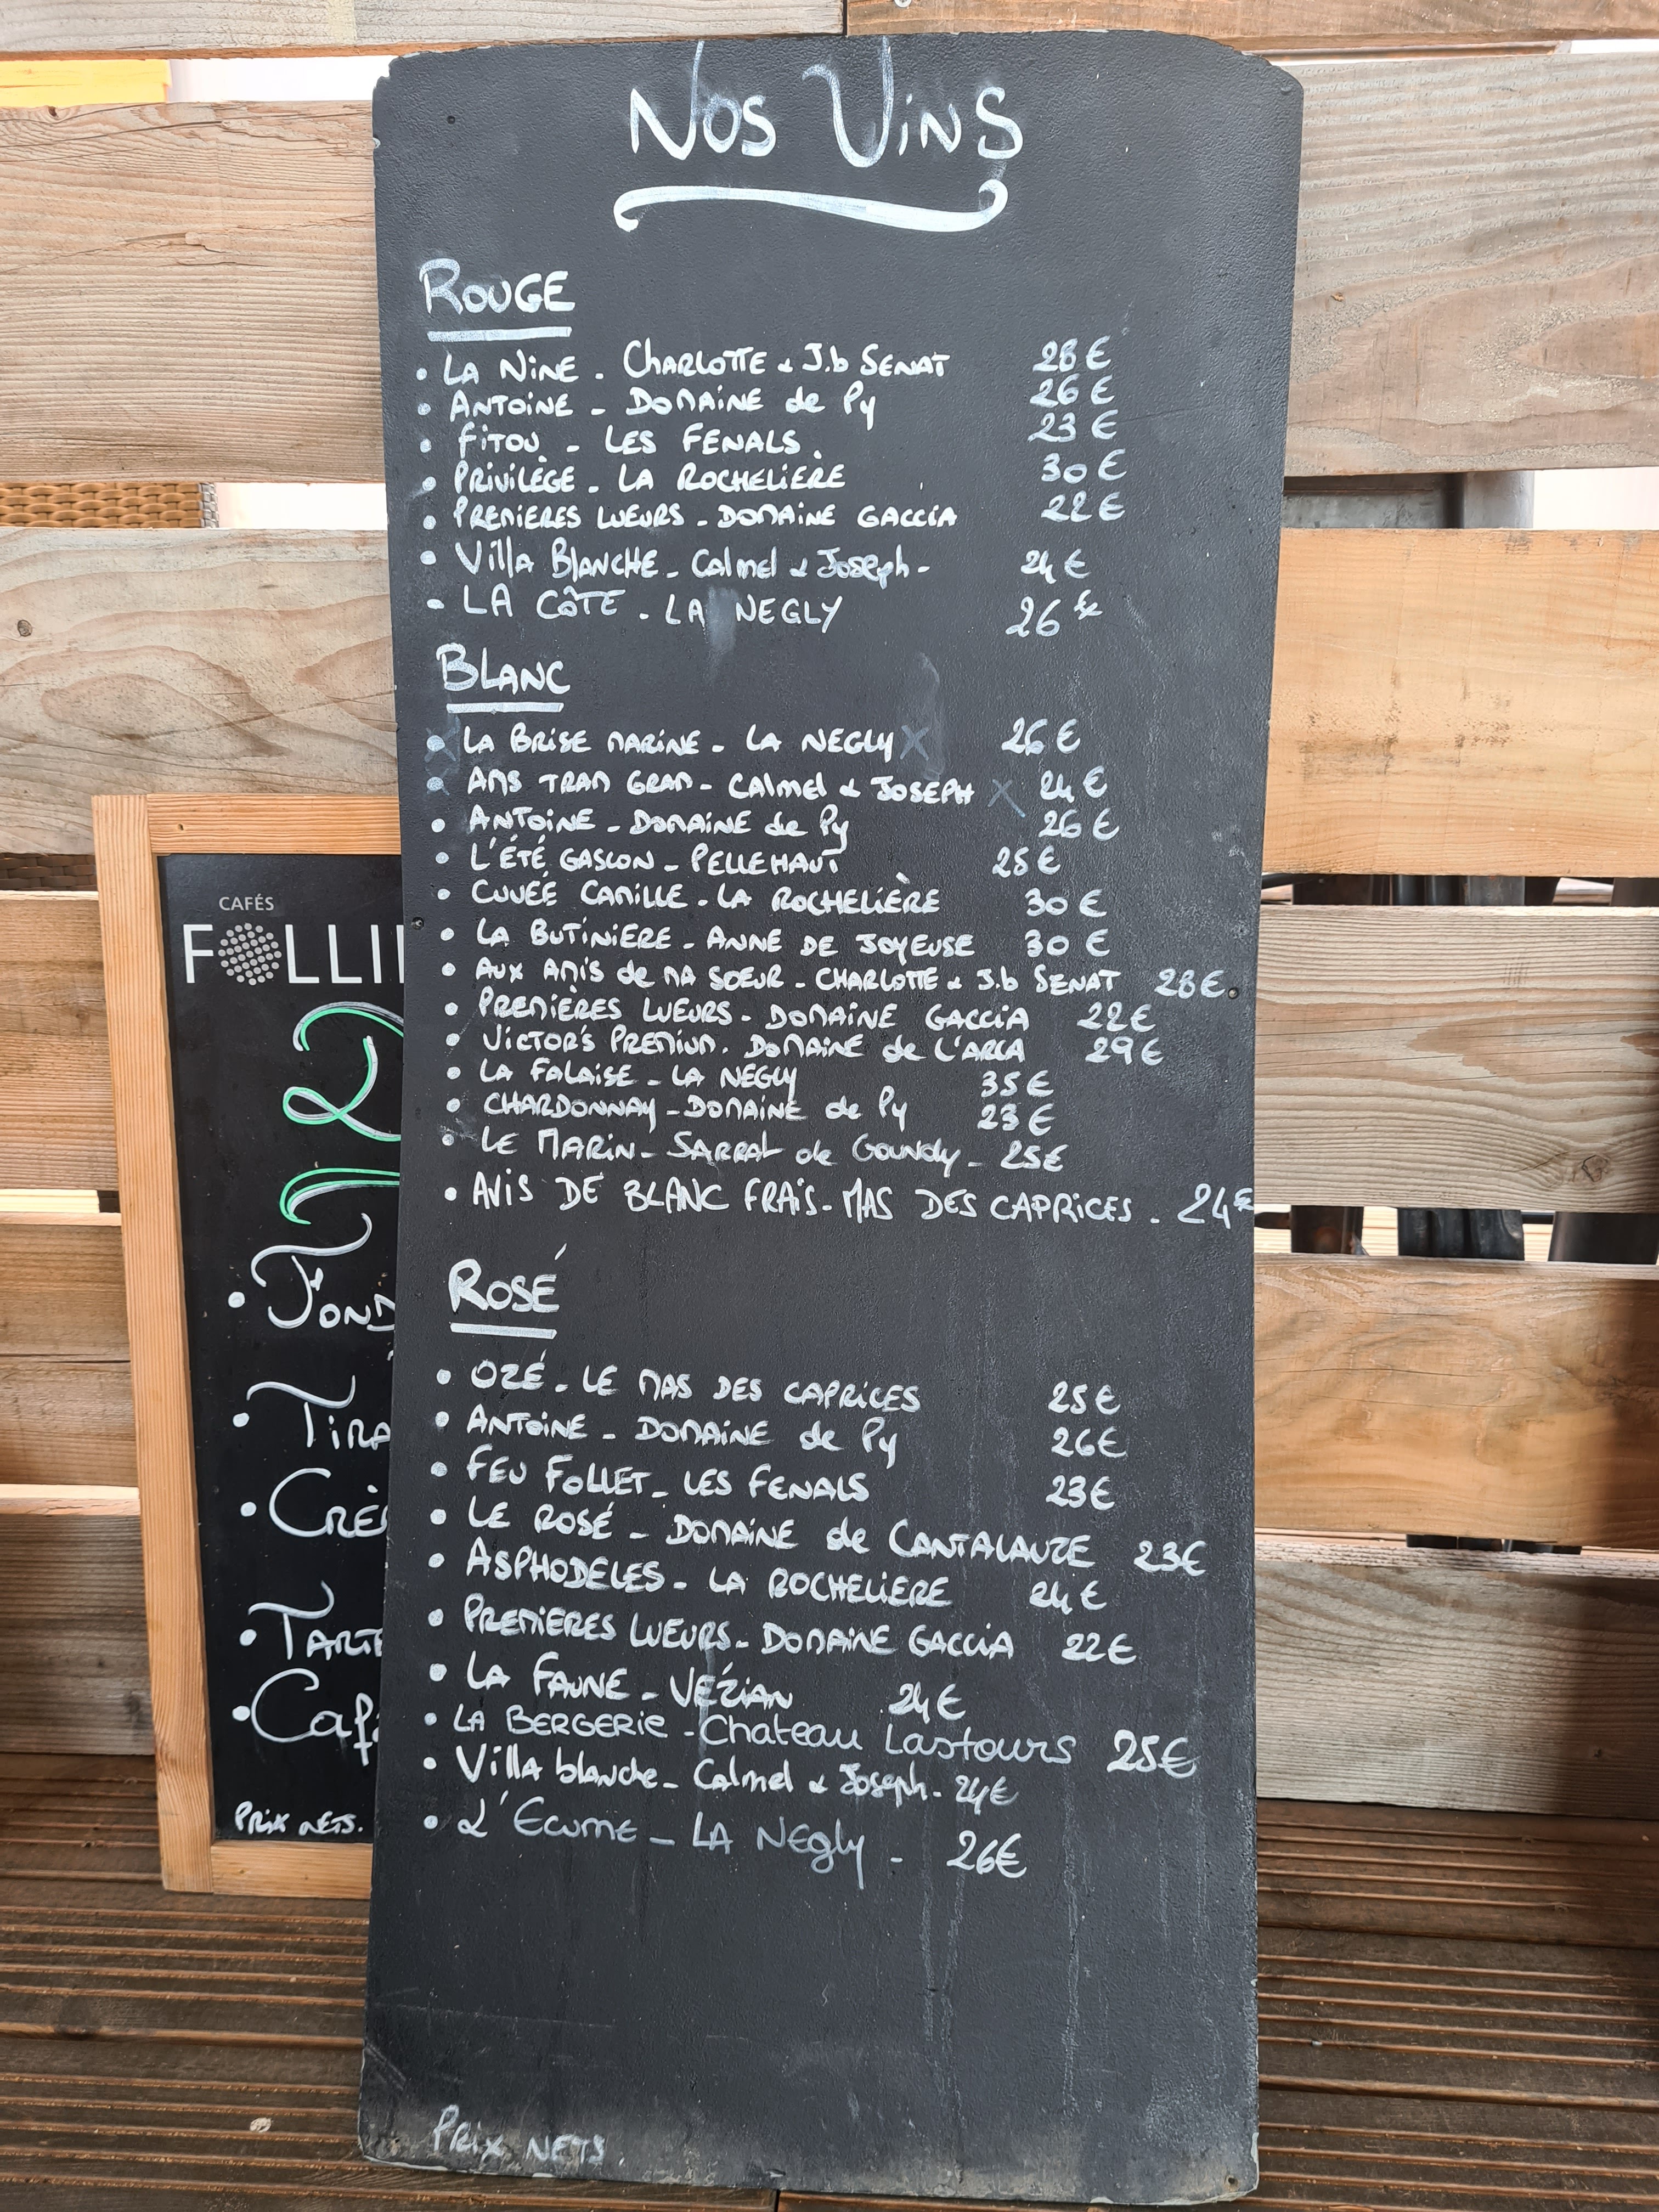 Nos Vins
ROUGE
• LA NINE - CHARLOTTE & J.b SENAT 28€
• ANTOINE - DOMAINE de Py 26€
• FITOU - LES FENALS 23€
• PRIVILÈGE - LA ROCHELIÈRE 30€
• PREMIERES LUEURS - DOMAINE GACCIA 22€
• Villa BLANCHE - Calmel & Joseph - 24€
- LA CÔTE - LA NEGLY 26€
BLANC
• LA BRISE MARINE - LA NEGLY X 26€
• AMS TRAM GRAM - Calmel & JOSEPH X 24€
• ANTOINE - DOMAINE de Py 26€
• L'ÉTÉ GASCON - PELLEHAUT 25€
• CUVÉE CAMILLE - LA ROCHELIÈRE 30€
• LA BUTINIERE - ANNE DE JOYEUSE 30€
• AUX AMIS de MA SOEUR - CHARLOTTE & J.b SENAT 28€
• PREMIÈRES LUEURS - DOMAINE GACCIA 22€
• VICTOR'S PREMIUM - DOMAINE de L'ARCA 29€
• LA FALAISE - LA NEGLY 35€
• CHARDONNAY - DOMAINE de Py 23€
• LE MARIN - SARRAT de Goundy - 25€
• AVIS DE BLANC FRAIS - MAS DES CAPRICES - 24€
ROSÉ
• OZÉ - LE MAS DES CAPRICES 25€
• ANTOINE - DOMAINE de Py 26€
• FEU FOLLET - LES FENALS 23€
• LE ROSÉ - DOMAINE de CANTALAUZE 23€
• ASPHODELES - LA ROCHELIERE 24€
• PREMIERES LUEURS - DOMAINE GACCIA 22€
• LA FAUNE - VÉZIAN 24€
• LA BERGERIE - Chateau Lastours 25€
• Villa blanche - Calmel & Joseph - 24€
• L'Ecume - LA Negly - 26€
PRIX NETS
CAFÉS
FOLLI
• FOND
• TIRA
• CRÈ
• TARTE
• Caf
PRIX NETS.